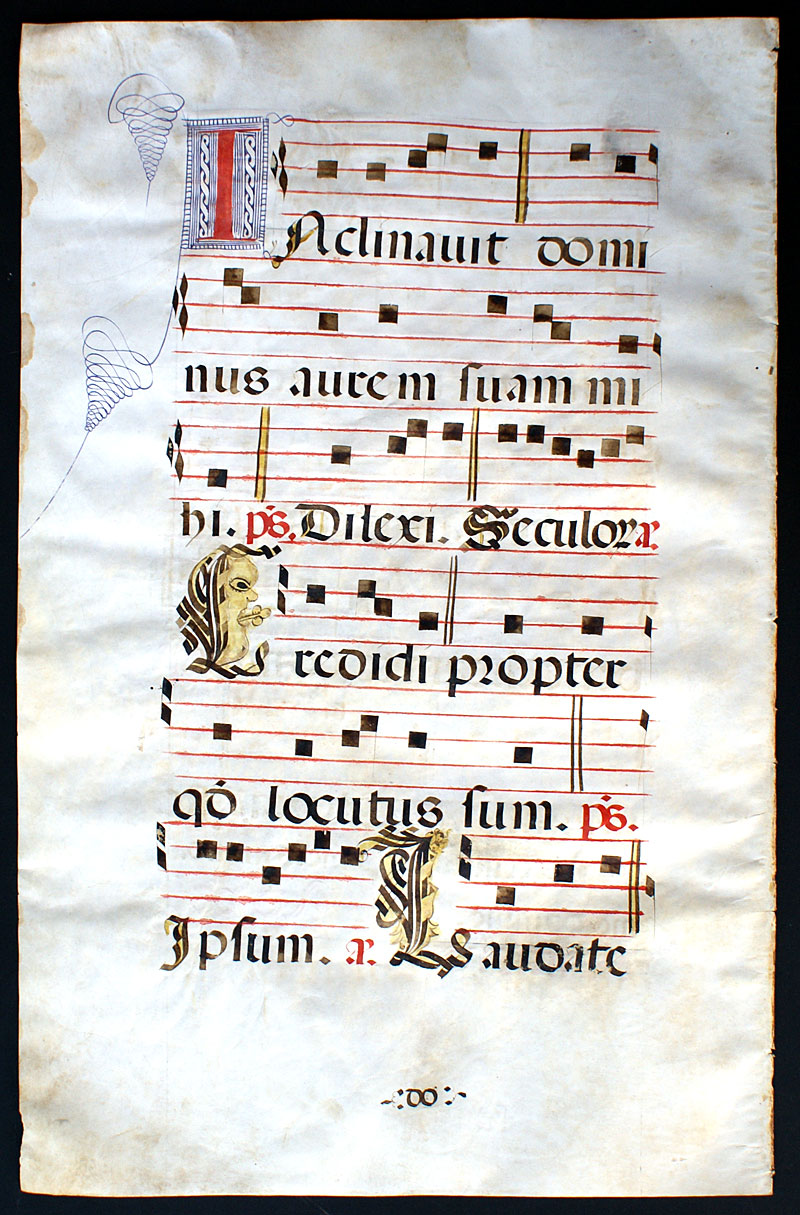 INclinavit domi
nus aurem suam mi
hi. ps. Dilexi. Seculor a.
Credidi propter
qd locutus sum. ps.
Ipsum. a. Laudate
do